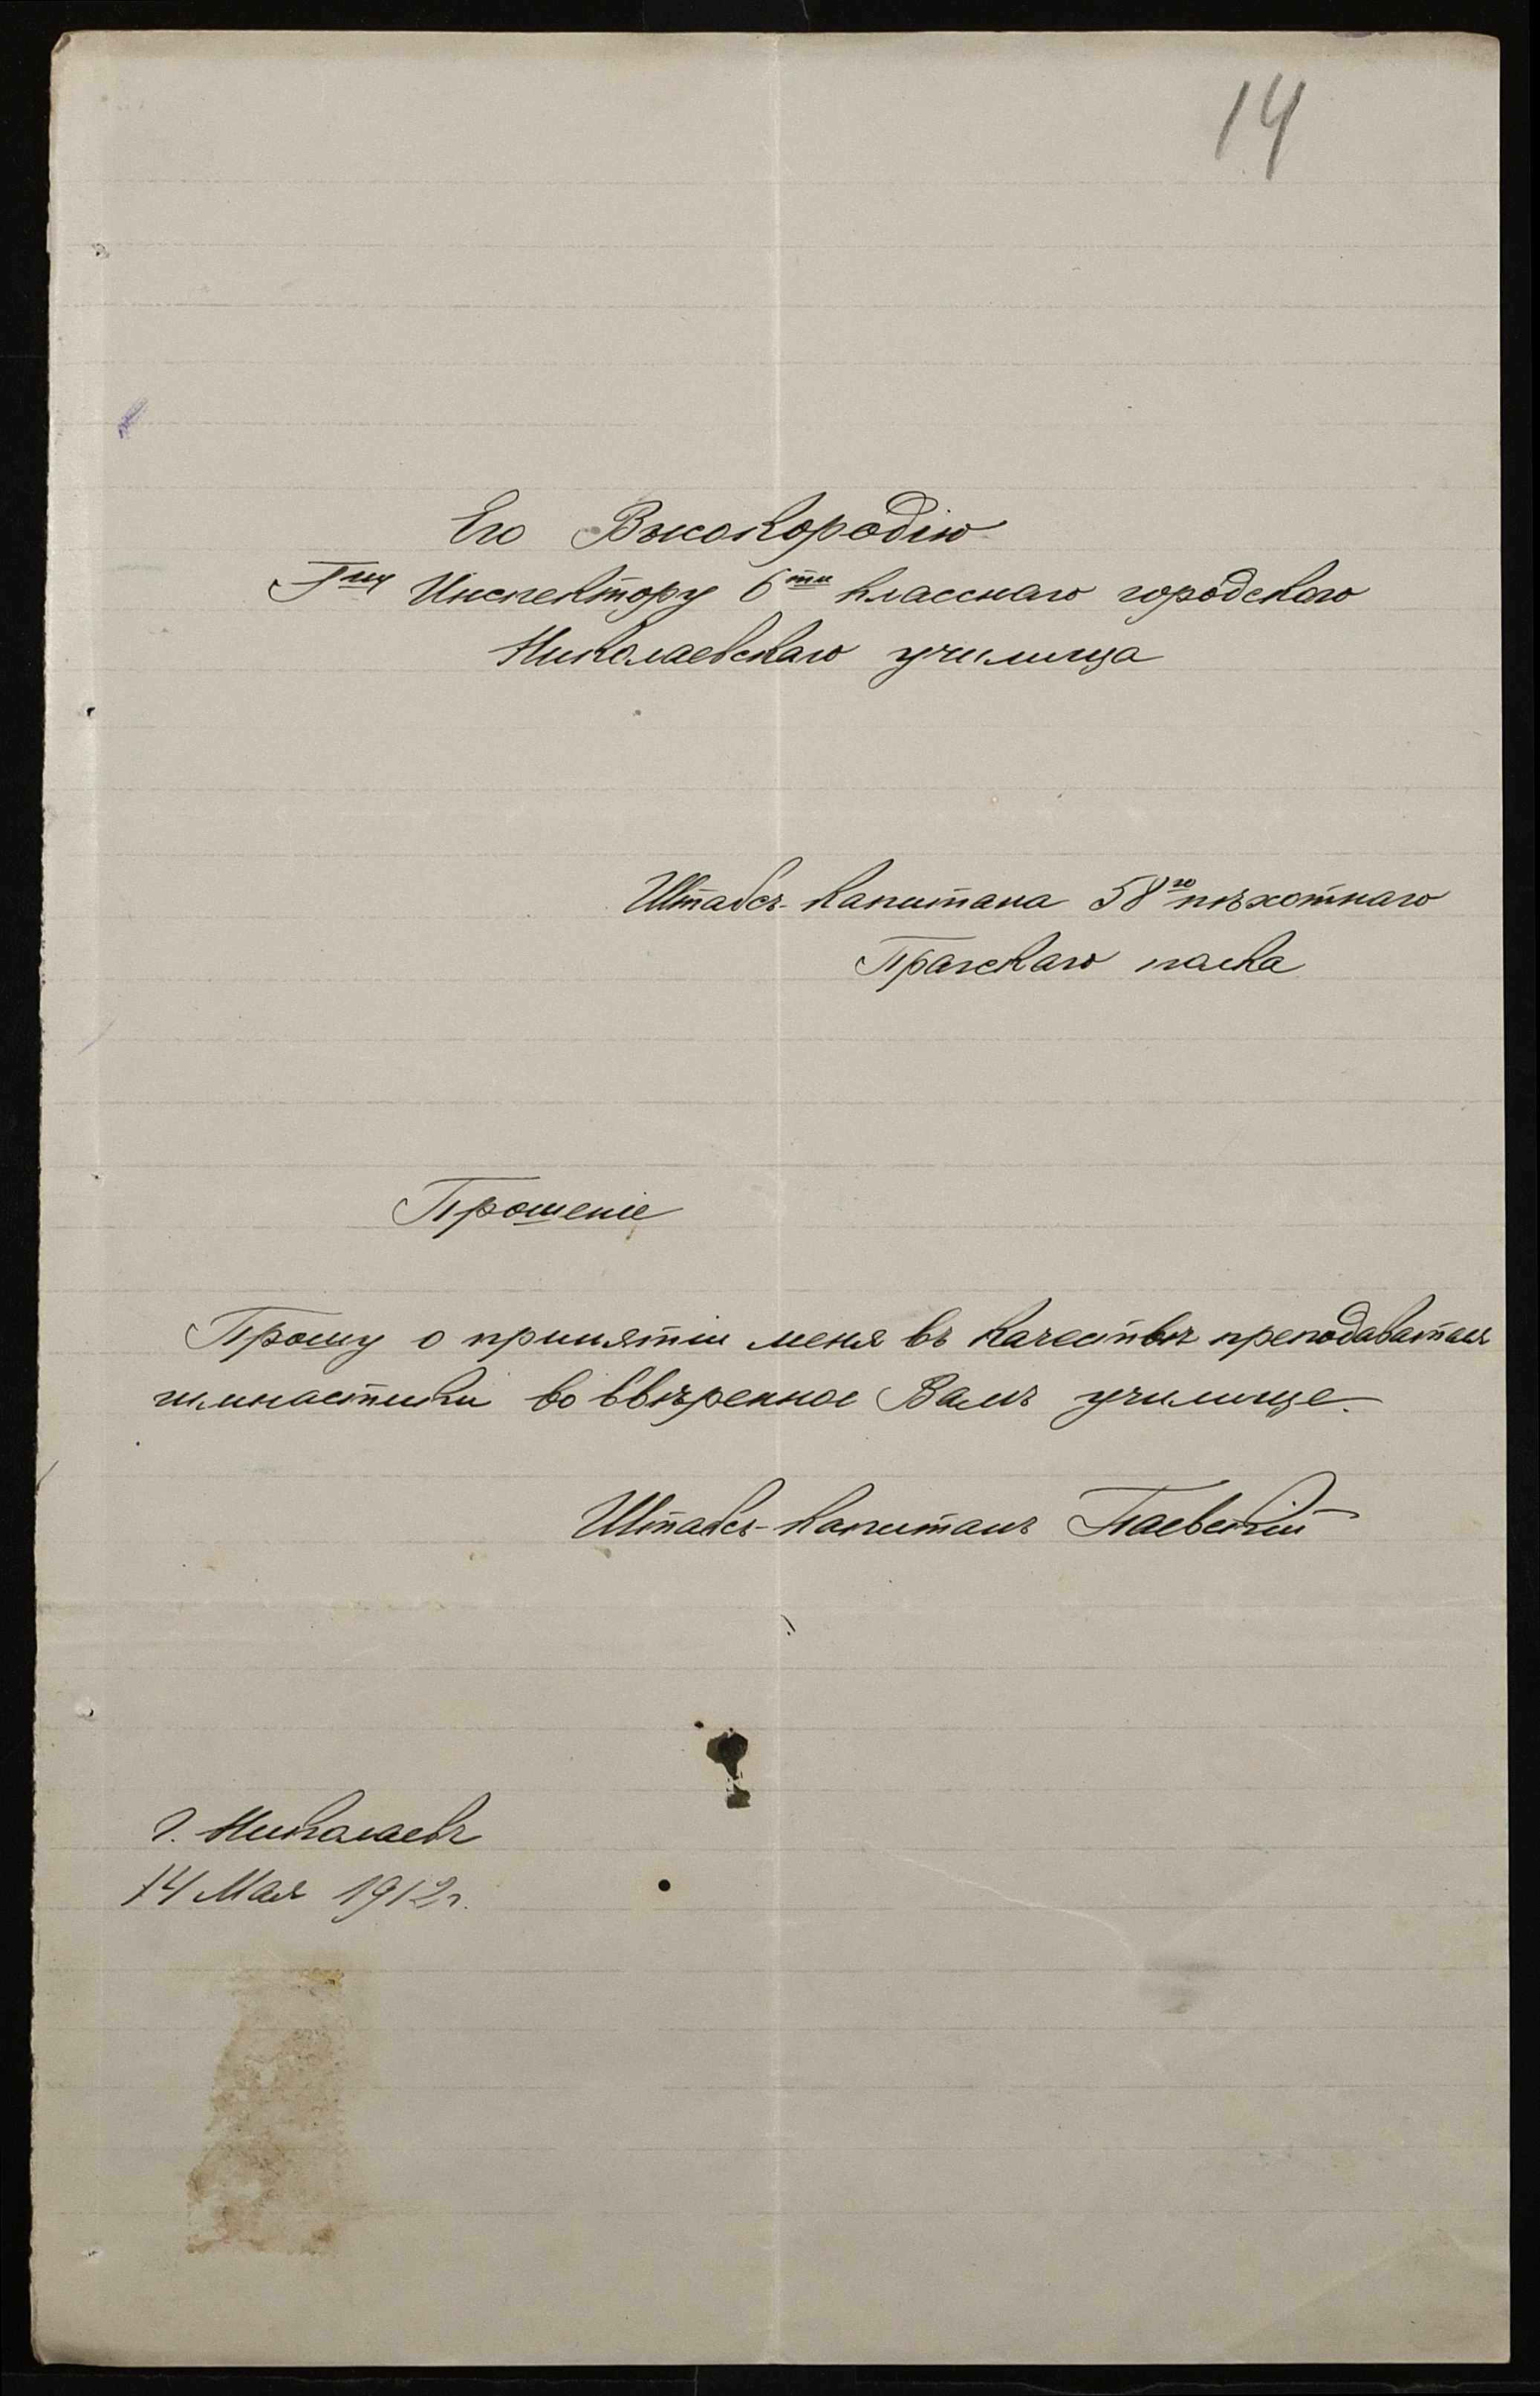 14
Его Высокородію
Г-ну Инспектору 6ти класснаго городского
Николаевскаго училища
Штабсъ-Капитана 58го пѣхотнаго
Пражскаго полка
Прошеніе
Прошу о принятіи меня въ качествѣ преподавателя
гимнастики во ввѣренное Вамъ училище.
Штабсъ-Капитанъ Паевскій
г. Николаевъ
14 Мая 1912 г.